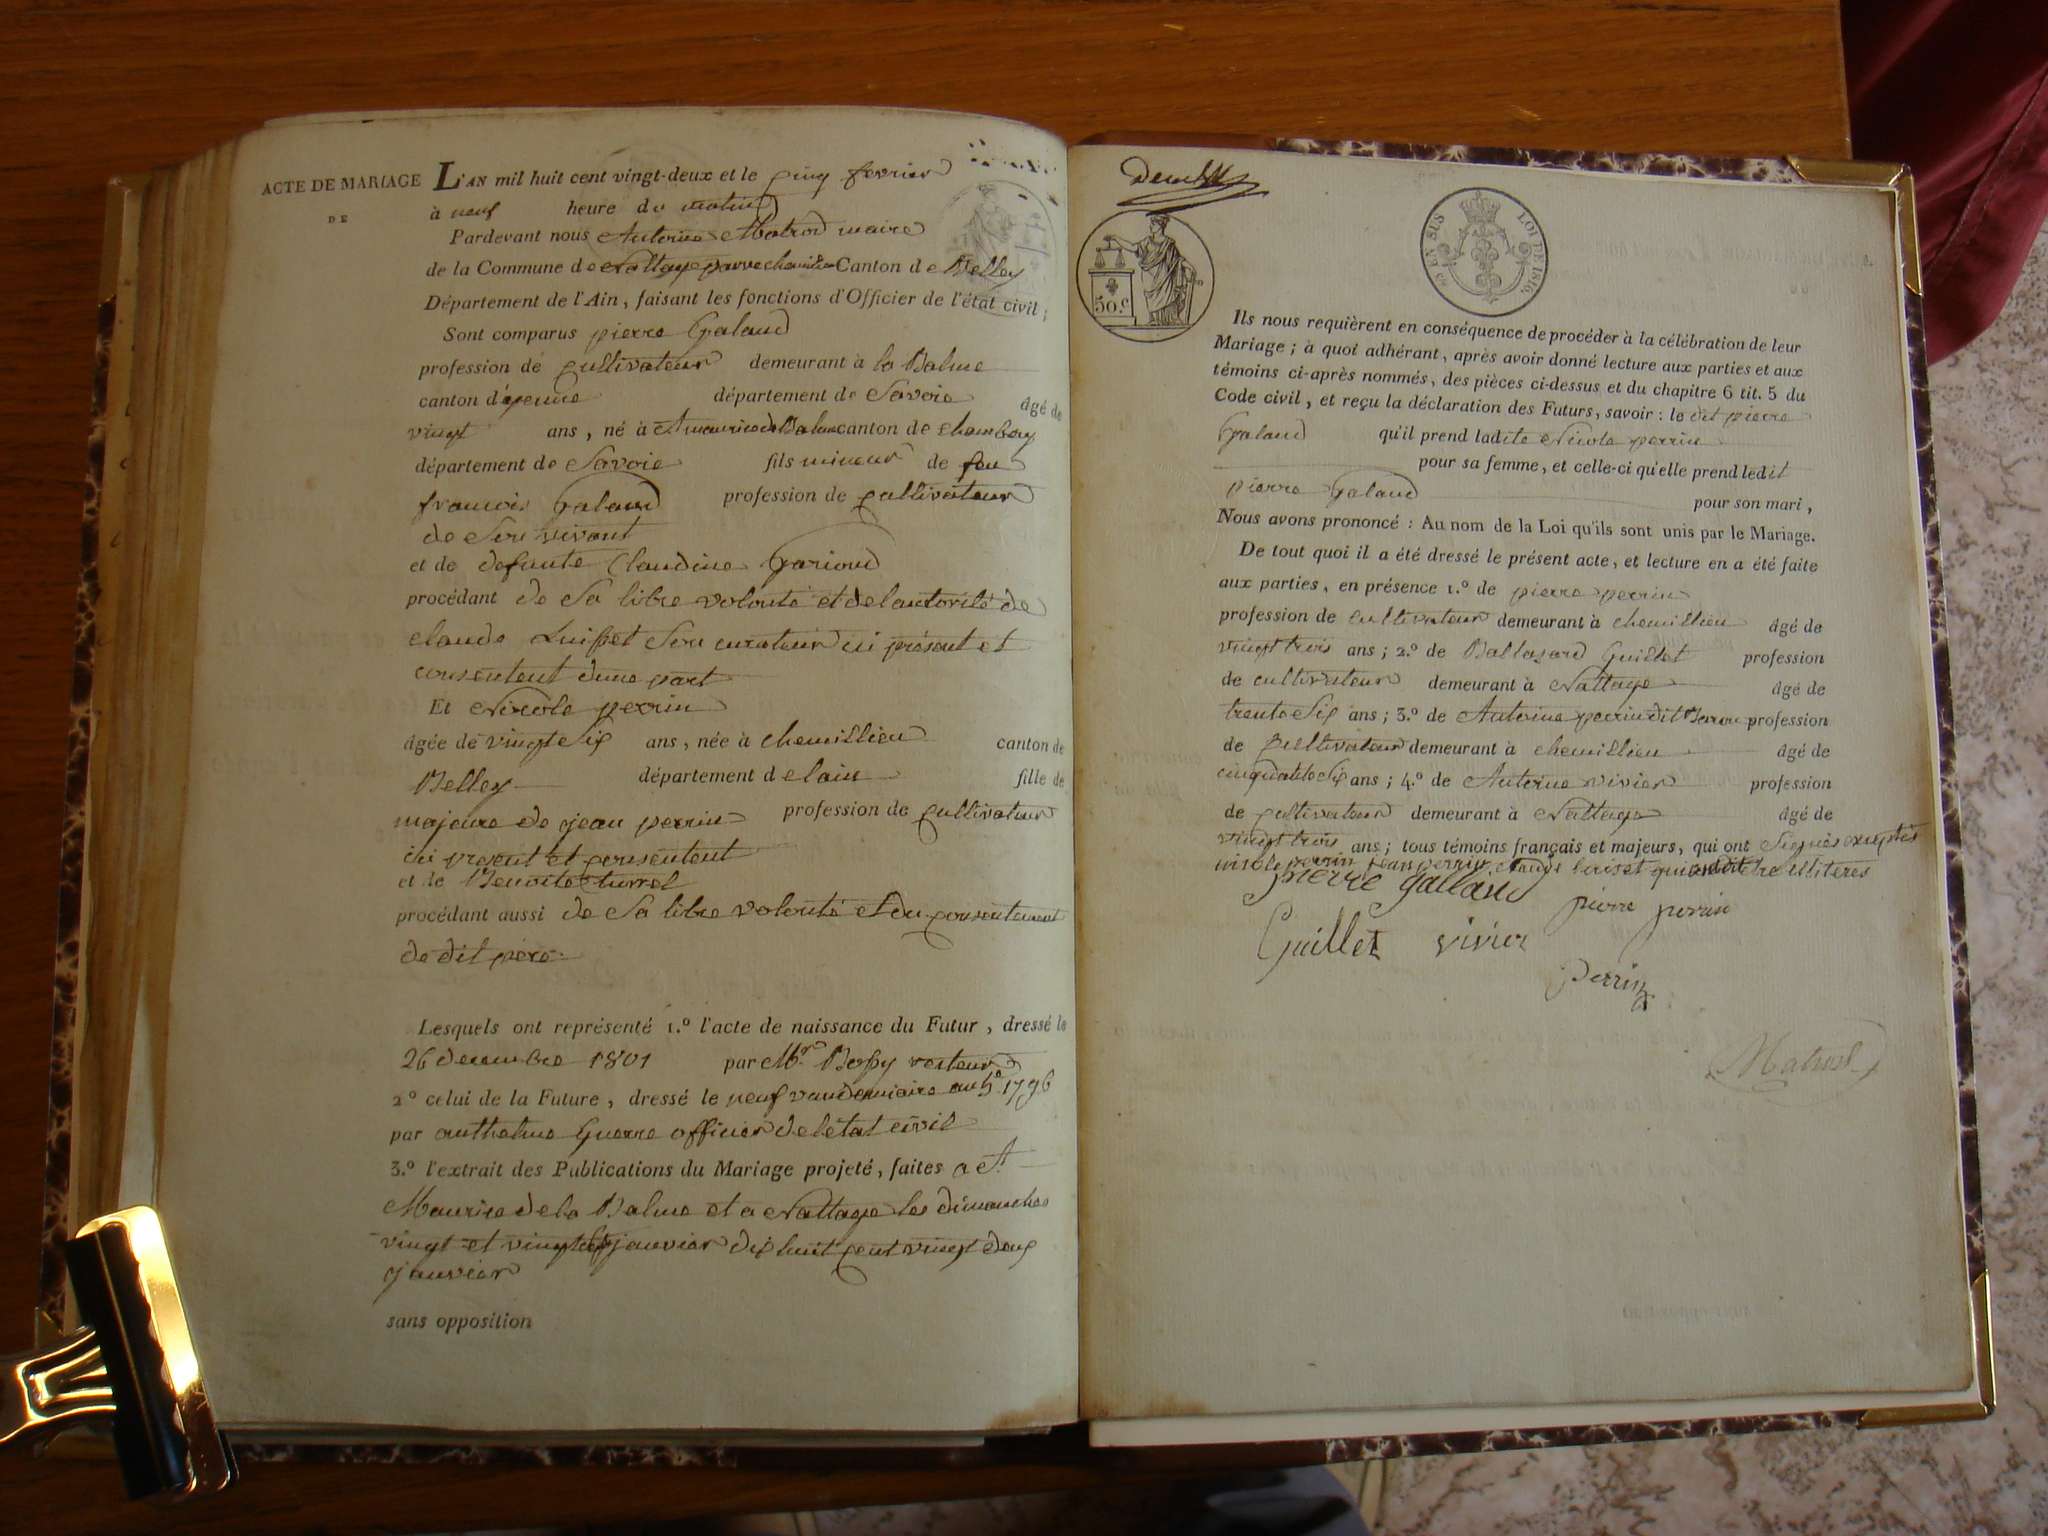 ACTE DE MARIAGE
DE
L'AN mil huit cent vingt-deux et le cinq fevrier
à neuf heure du matin
Pardevant nous Antoine Matrod maire
de la Commune de Nattage parve chemilieu Canton de Belley
Département de l'Ain, faisant les fonctions d'Officier de l'état civil ;
Sont comparus pierre Galand
profession de cultivateur demeurant à la Balme
canton d'yenne département de Savoie âgé de
vingt ans, né à St maurice de Balme canton de chambery
département de Savoie fils mineur de feu
francois Galand profession de cultivateur
de Son vivant
et de defunte Claudine Garioud
procédant de Sa libre volonté et delautorité de
claude Luisset Son curateur ici présent et
consentent dune part
Et Nicole perrin
âgée de vingt Six ans, née à chemillieu canton de
Belley département d elain fille de
majeure de jean perrin profession de cultivateur
ici present et consentent
et de Benoite turrel
procédant aussi de Sa libre volonté et du consentement
de dit père
Lesquels ont représenté 1.° l'acte de naissance du Futur, dressé le
26 decembre 1801 par Mr. Bossy recteur
2° celui de la Future, dressé le neuf vandemiaire an 5e 1796
par anthelme Guerre officier deletat civil
3.° l'extrait des Publications du Mariage projeté, faites a St
Maurice dela Balme et a Nattage les dimanches
vingt et vingt sept janvier dix huit cent vingt deux
janvier
sans opposition
50.c
EN SUS
LOI DE 1816.
Ils nous requièrent en conséquence de procéder à la célébration de leur
Mariage ; à quoi adhérant, après avoir donné lecture aux parties et aux
témoins ci-après nommés, des pièces ci-dessus et du chapitre 6 tit. 5 du
Code civil, et reçu la déclaration des Futurs, savoir : le dit pierre
Galand qu'il prend ladite Nicole perrin
pour sa femme, et celle-ci qu'elle prend ledit
pierre Galand pour son mari,
Nous avons prononcé : Au nom de la Loi qu'ils sont unis par le Mariage.
De tout quoi il a été dressé le présent acte, et lecture en a été faite
aux parties, en présence 1.° de pierre perrin
profession de cultivateur demeurant à chemillieu âgé de
vingt trois ans ; 2.° de Baltasard Guillet profession
de cultivateur demeurant à Nattage âgé de
trente Six ans ; 3.° de Antoine perrin dit profession
de Cultivateur demeurant à chemillieu âgé de
cinquante Six ans ; 4.° de Antoine vivier profession
de cultivateur demeurant à Nattage âgé de
vingt trois ans ; tous témoins français et majeurs, qui ont Signés exceptés
nicole perrin jean perrin claude luiset qui ont dit etre illiteres
pierre galland
pierre perrin
Guillet vivier
perrin
Matrod